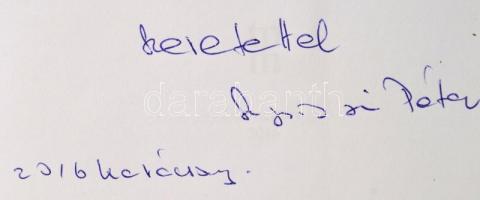 szeretettel
darabanth.com
Péter
2016 karácsony.